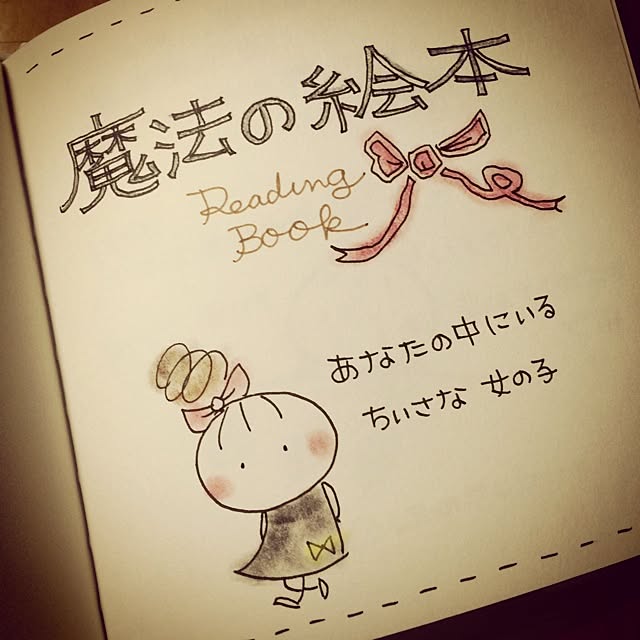 魔法の絵本
Reading
Book
あなたの中にいる
ちいさな 女の子